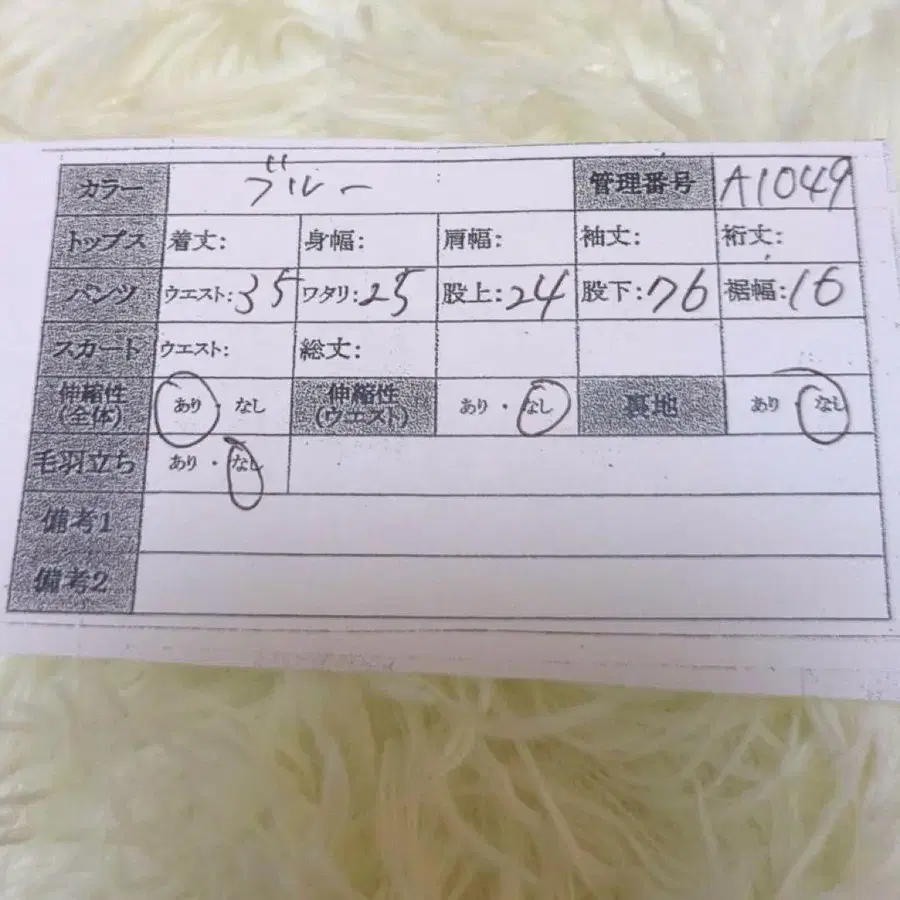 カラー ブルー 管理番号 A1049
トップス 着丈: 身幅: 肩幅: 袖丈: 裄丈:
パンツ ウエスト:35 ワタリ:25 股上:24 股下:76 裾幅:16
スカート ウエスト: 総丈:
伸縮性 (全体) あり・なし 伸縮性 (ウエスト) あり・なし 裏地 あり・なし
毛羽立ち あり・なし
備考1
備考2